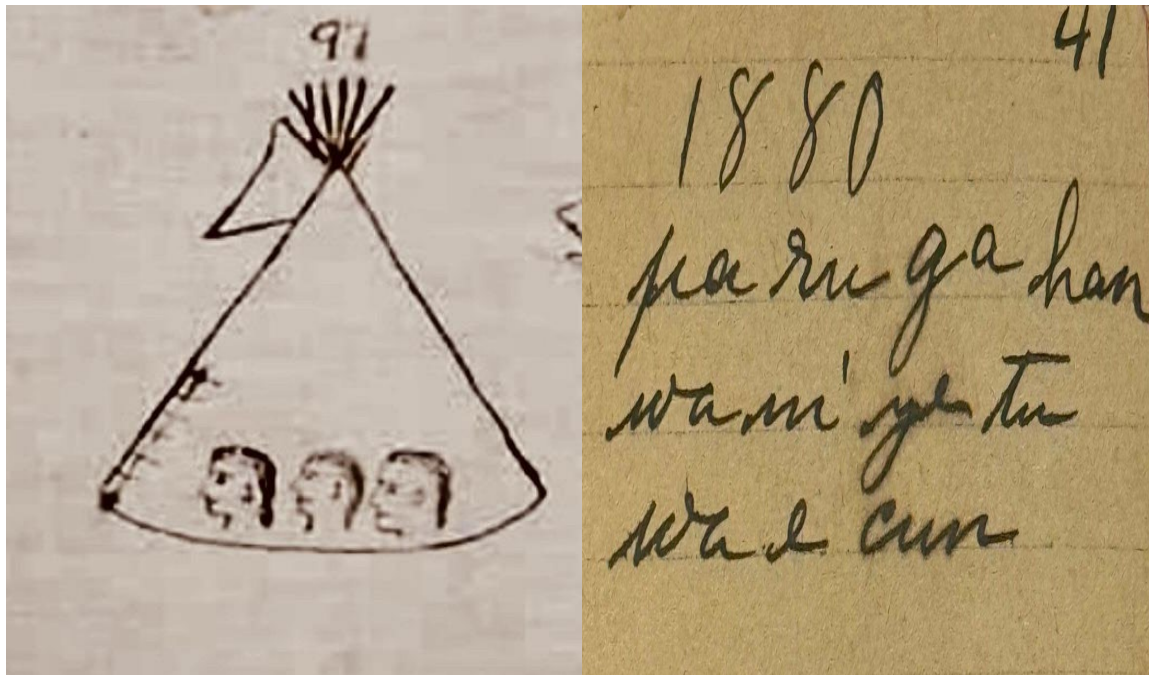 97
41
1880
pa zu ga han
wa ni' ye tu
wa e cun